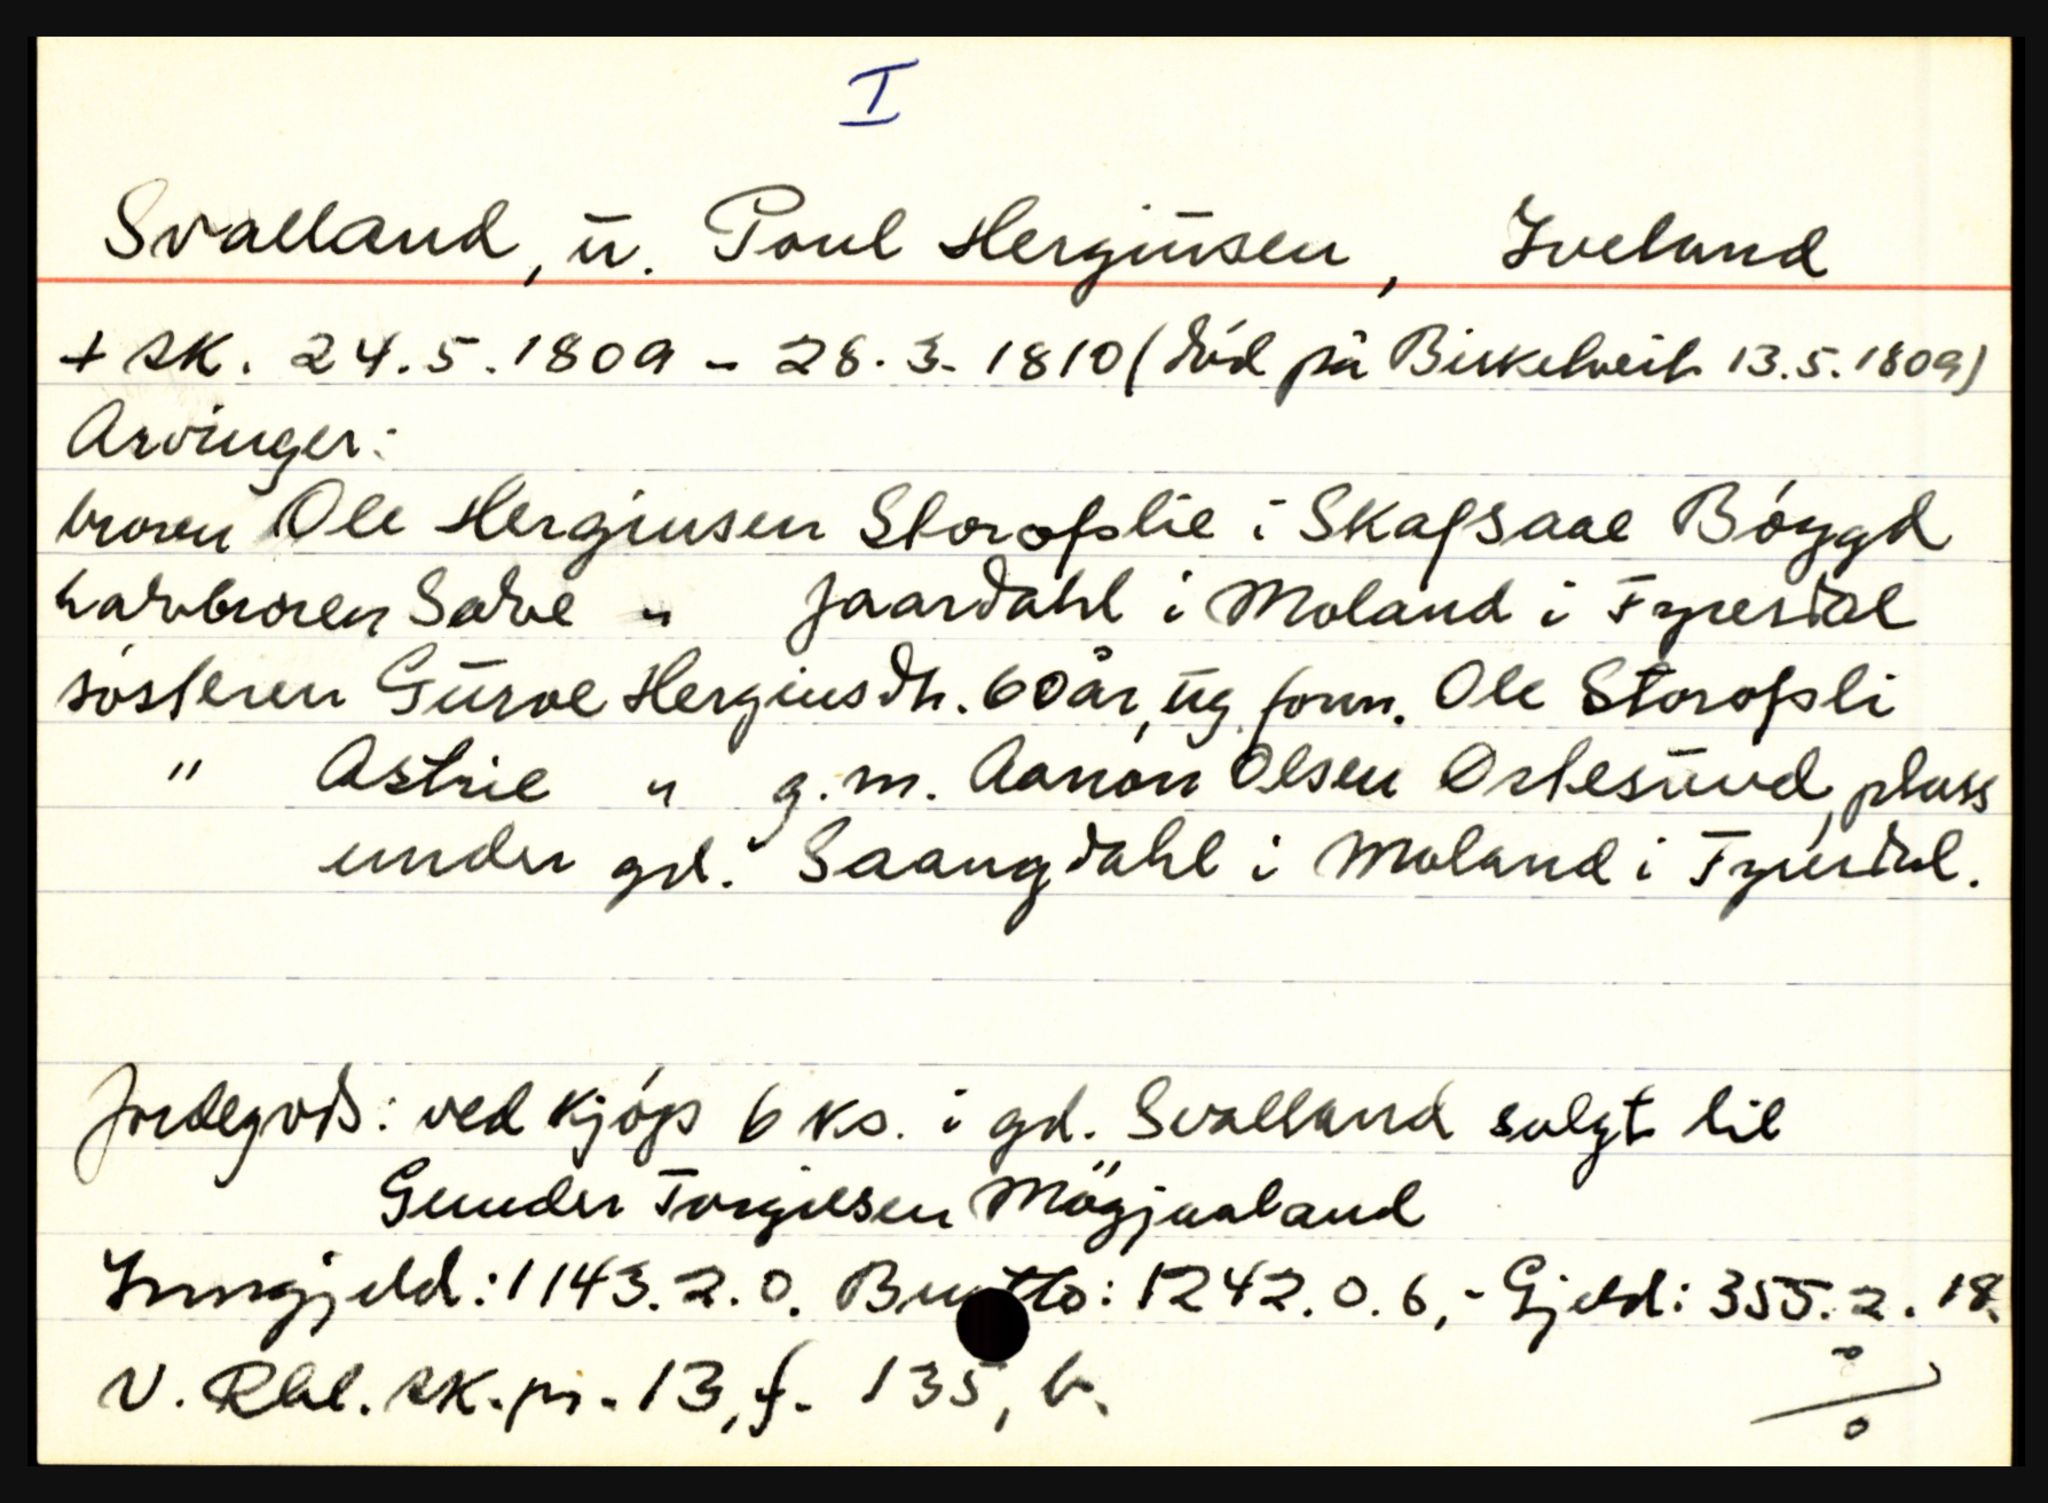 I
Svalland, u. Poul Herginsen, Iveland
+ sk. 24.5.1809 - 28.3.1810 (død på Birketveit 13.5.1809)
Arvinger:
broren Ole Herginsen Storofslie i Skafsaae Bøygd
halvbroren Salve " Jaardahl i Moland i Fyresdal
søsteren Gurve Herginsdtr. 60 år, ug form. Ole Storofsli
" Astrie " g.m. Aanon Olsen Ortesund, plass
under gd. Saangdahl i Moland i Fyresdal.
Jordegods: ved kjøp 6 ks. i gd. Svalland solgt til
Gunder Torgilsen Mögjaaland
Inngjeld: 1143.2.0. Brutto: 1242.0.6,- Gjeld: 355.2.18.
N. Rbl. sk. pr. 13, f. 135, b.